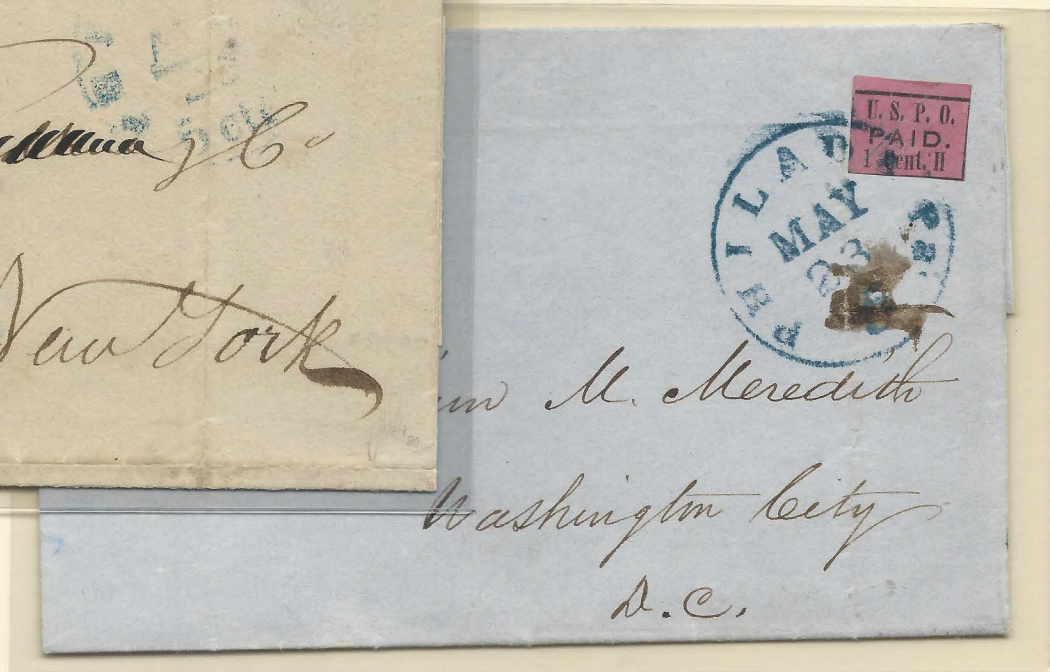 5 cts
& Co
New York
U. S. P. O.
PAID.
1 Cent. H
PHILADA
MAY
23
5 cts
M. Meredith
Washington City
D.C.